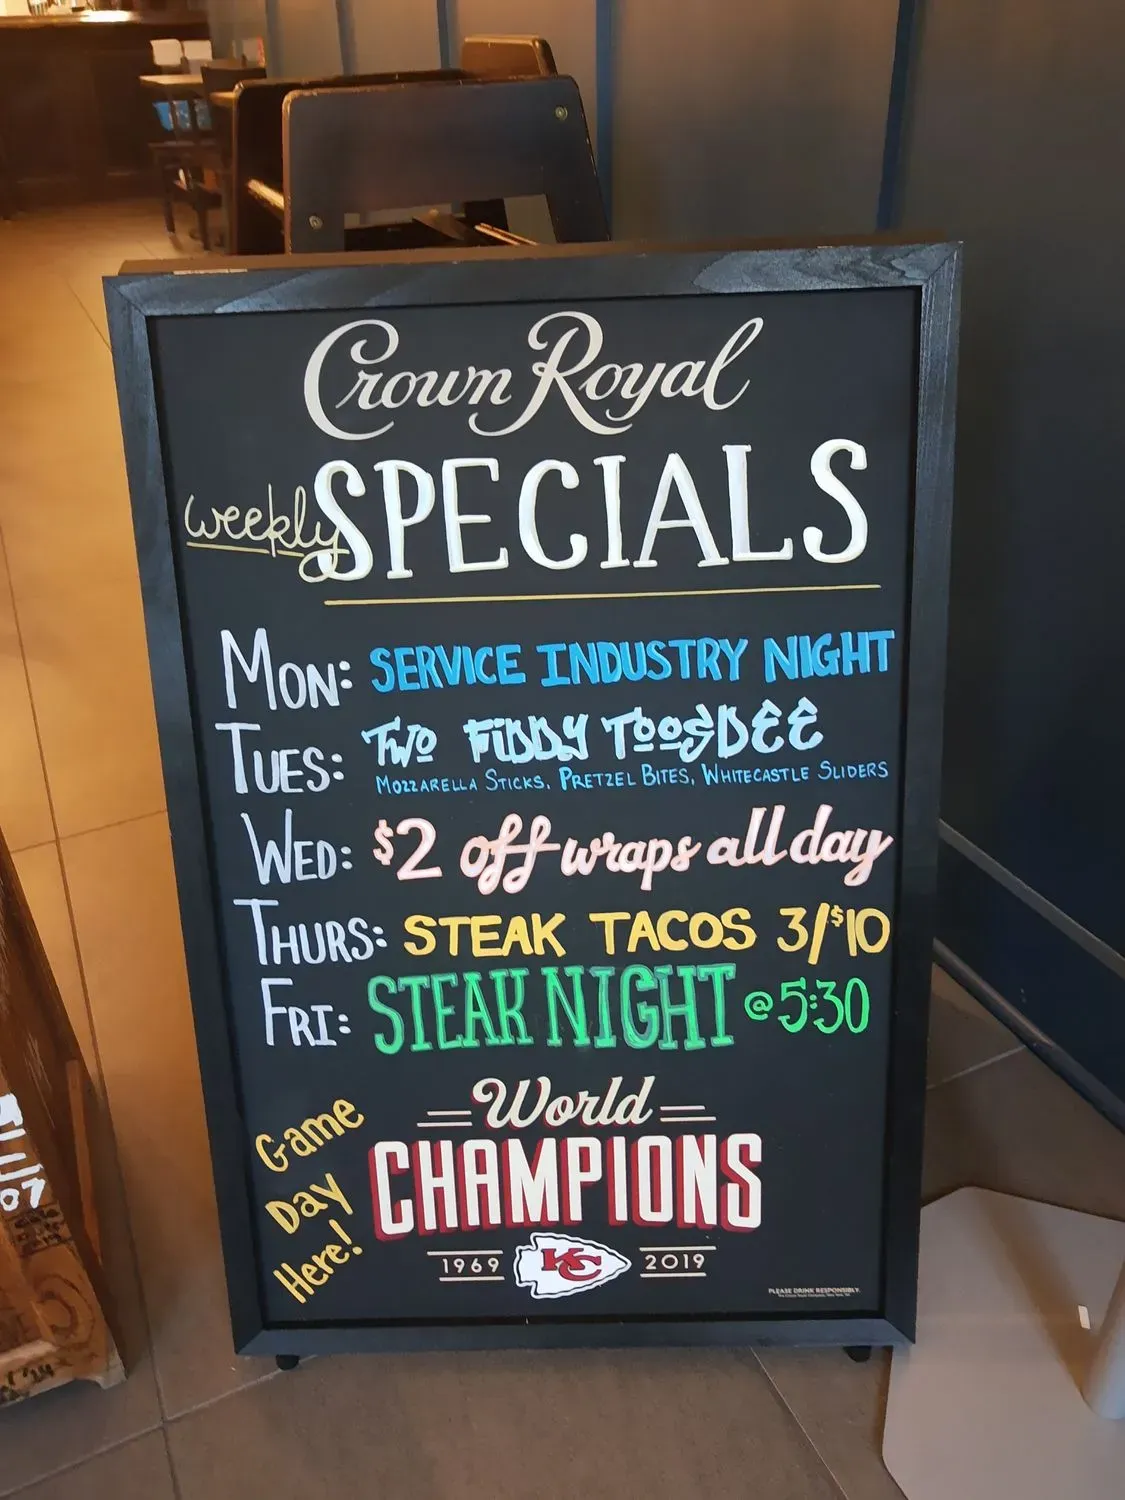 Crown Royal
weekly SPECIALS
MON: SERVICE INDUSTRY NIGHT
TUES: TWO FIDDY TOOSDEE
MOZZARELLA STICKS, PRETZEL BITES, WHITECASTLE SLIDERS
WED: $2 off wraps all day
THURS: STEAK TACOS 3/$10
FRI: STEAK NIGHT @ 5:30
Game
Day
Here!
World
CHAMPIONS
1969 KC 2019
PLEASE DRINK RESPONSIBLY.
07